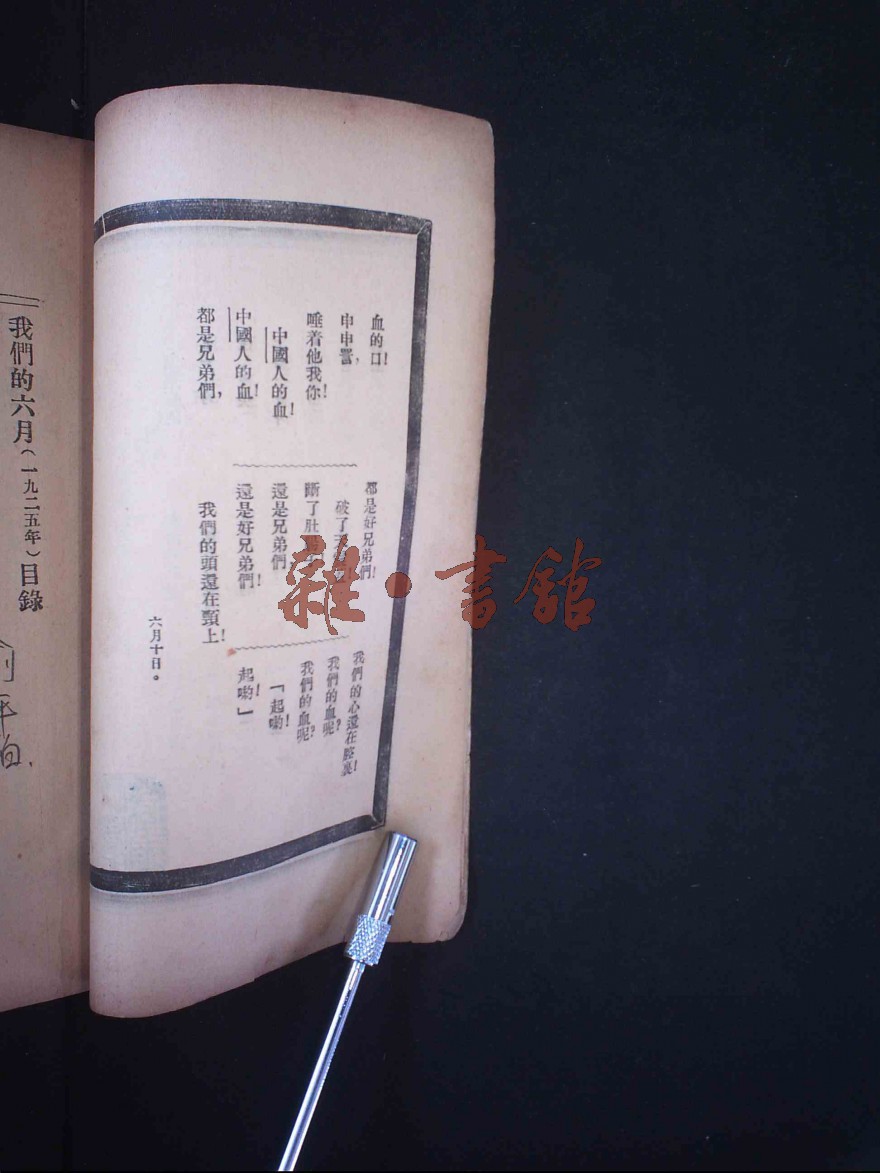 血的口！
申申詈，
唾着他我你！
中國人的血！
中國人的血！
都是兄弟們，
都是好兄弟們！
破了
斷了肚
還是兄弟們，
還是好兄弟們！
我們的頭還在頸上！
我們的心還在腔裏！
我們的血呢？
我們的血呢？
「起喲！
起喲！」
六月十日。
我們的六月（一九二五年）目錄
平伯.
雜·書館